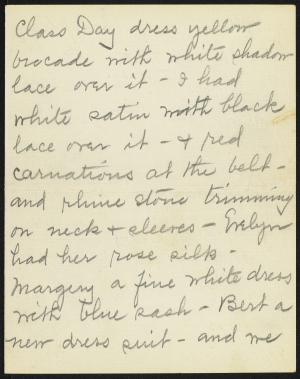 Class Day dress yellow
brocade with white shadow
lace over it - I had
white satin with black
lace over it - & red
carnations at the belt -
and rhine stone trimming
on neck & sleeves - Evelyn
had her rose silk -
Margery a fine white dress
with blue sash - Bert a
new dress suit - and we